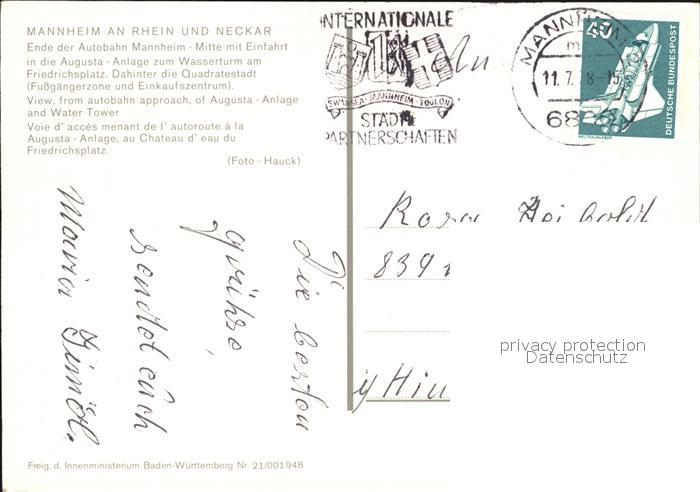 MANNHEIM AN RHEIN UND NECKAR
Ende der Autobahn Mannheim - Mitte mit Einfahrt
in die Augusta - Anlage zum Wasserturm am
Friedrichsplatz. Dahinter die Quadratestadt
(Fußgängerzone und Einkaufszentrum).
View, from autobahn approach, of Augusta - Anlage
and Water Tower
Voie d' accés menant de l' autoroute à la
Augusta - Anlage, au Chateau d' eau du
Friedrichsplatz.
(Foto - Hauck)
INTERNATIONALE
SWANSEA - MANNHEIM - TOULON
STADT
PARTNERSCHAFTEN
An
MANNHEIM
11.7.
68
40
DEUTSCHE BUNDESPOST
WELTRAUMLABOR
Rosa
839
Die besten
grüße,
sendet euch
Maria
privacy protection
Datenschutz
Freig. d. Innenministerium Baden-Württemberg Nr. 21/001948